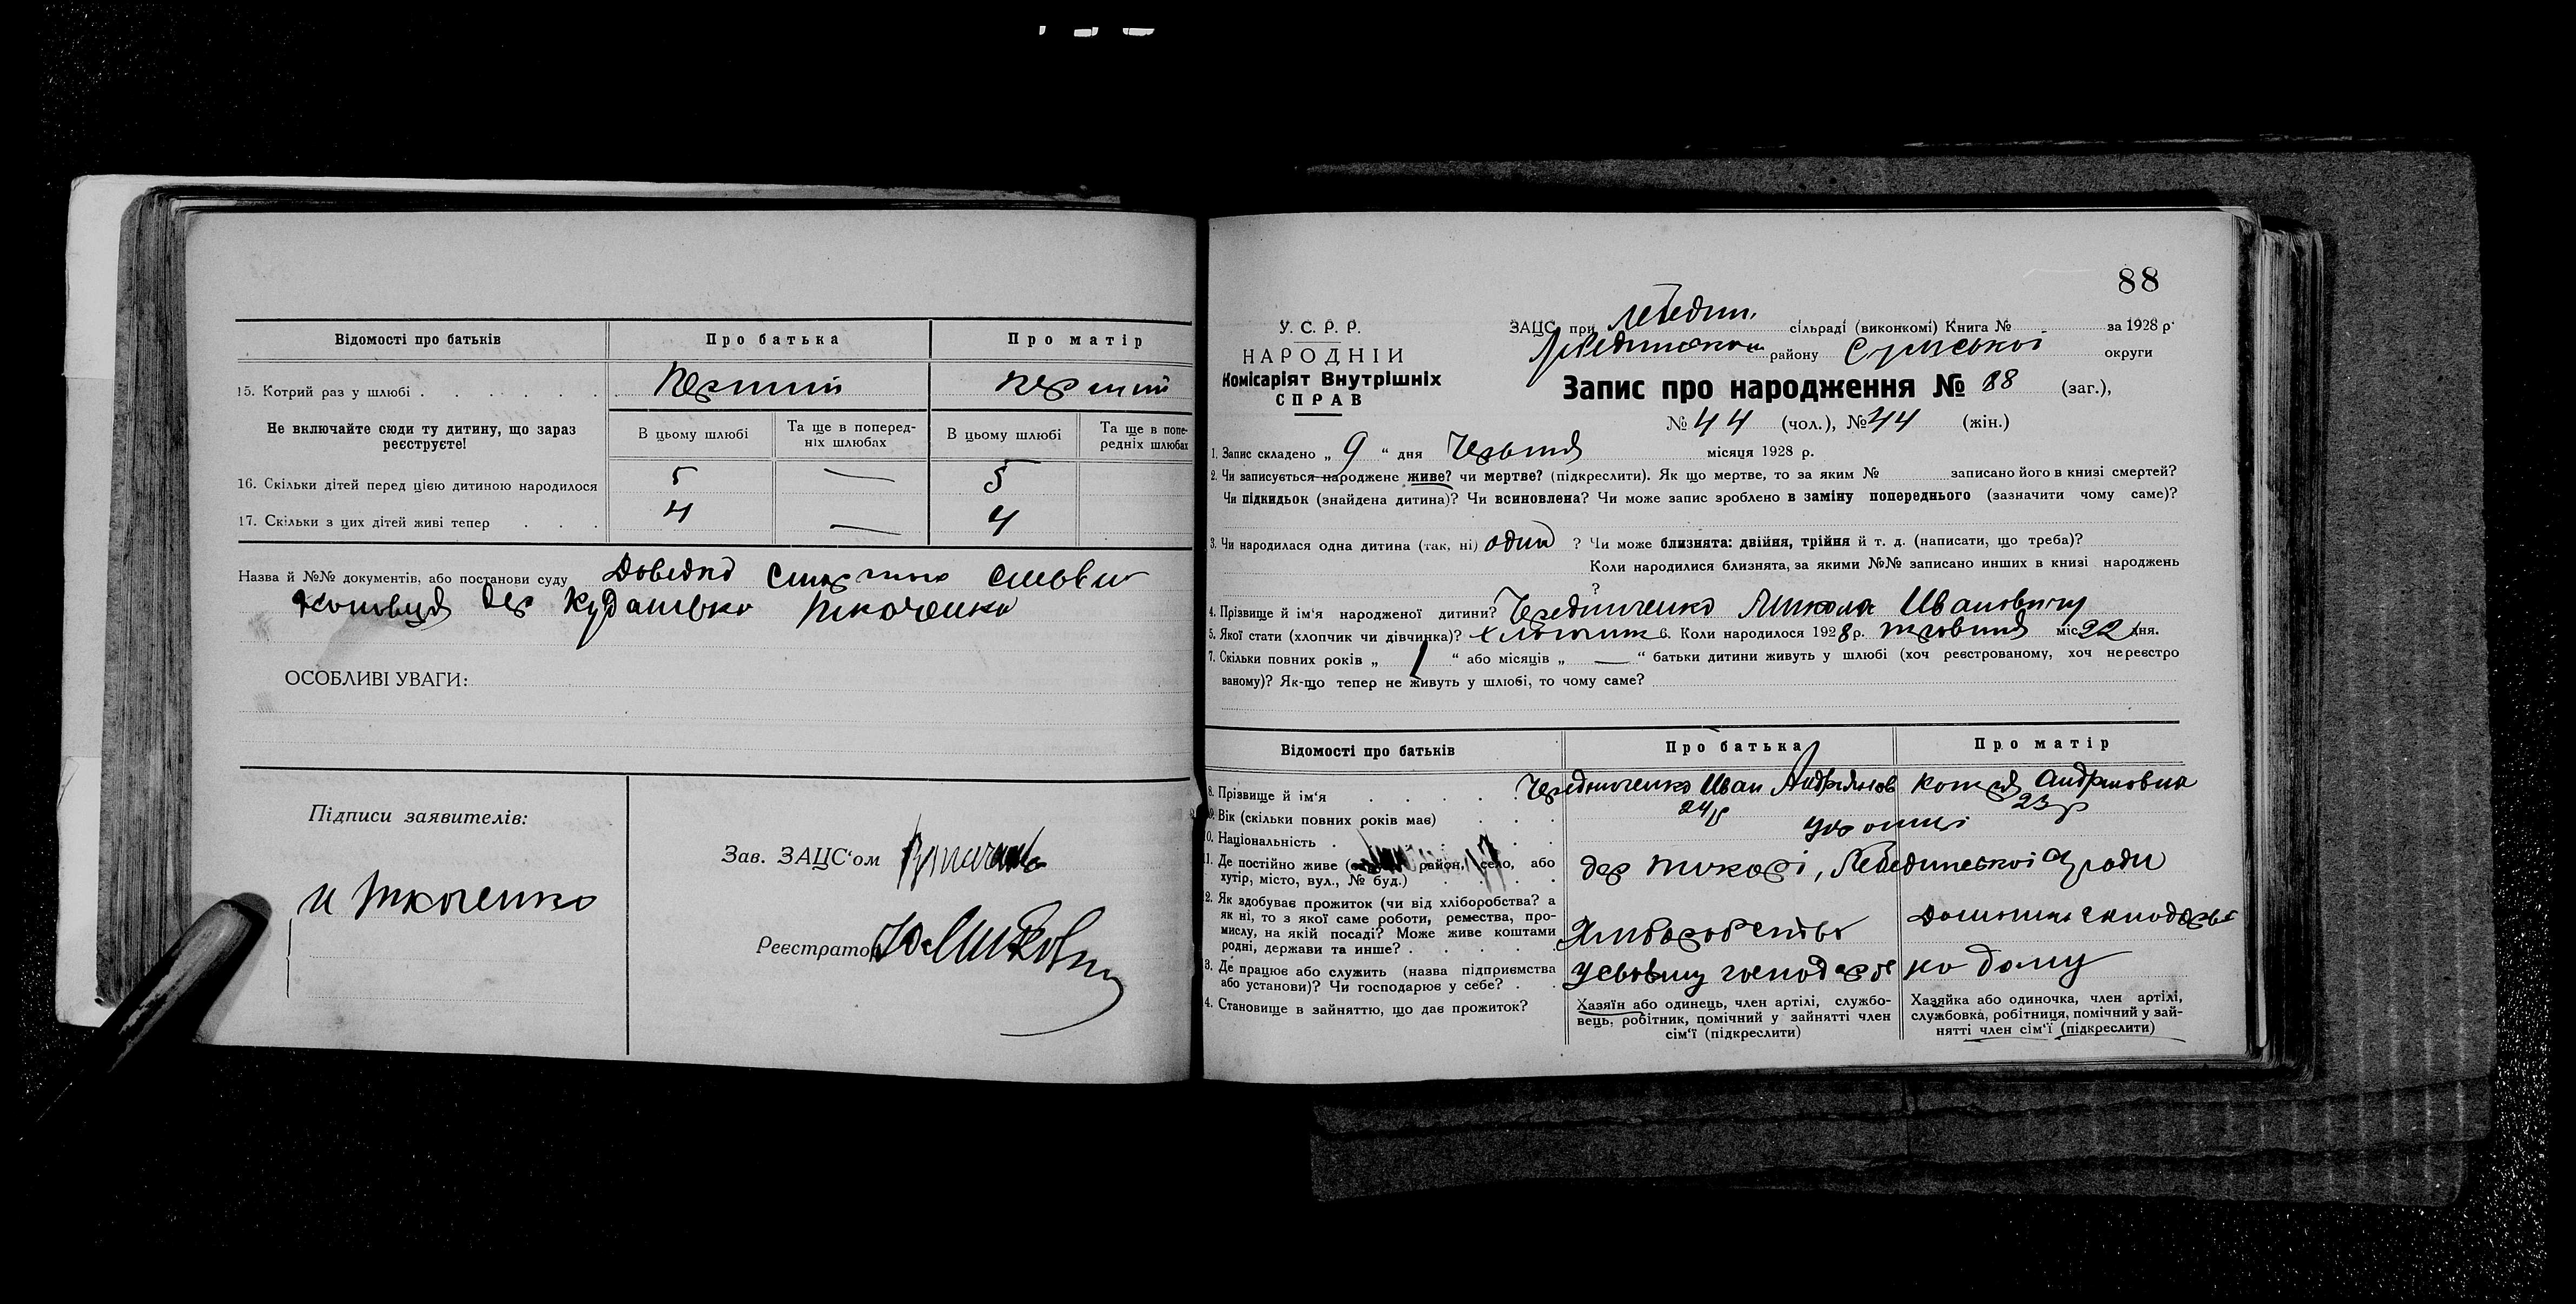 Відомості про батьків
Про батька
Про матір
15. Котрий раз у шлюбі
Перший
перший
Не включайте сюди ту дитину, що зараз реєструєте!
В цьому шлюбі
Та ще в поперед-
ніх шлюбах
В цьому шлюбі
Та ще в попе-
редніх шлюбах
16. Скільки дітей перед цією дитиною народилося
5 — 5
17. Скільки з цих дітей живі тепер
4 — 4
Назва й №№ документів, або постанови суду
ОСОБЛИВІ УВАГИ:
Підписи заявителів:
И Ткаченко
Зав. ЗАЦС'ом
Реєстратор
88
У. С. Р. Р.
НАРОДНІЙ
Комісаріят Внутрішніх
СПРАВ
ЗАЦС при Лебедин. сільраді (виконкомі) Книга № за 1928 р.
району Сумської округи
Запис про народження № 88 (заг.),
№ 44 (чол.), № 44 (жін.)
1. Запис складено „ 9 “ дня Червня місяця 1928 р.
2. Чи записується народжене живе? чи мертве? (підкреслити). Як що мертве, то за яким № записано його в книзі смертей?
Чи підкидьок (знайдена дитина)? Чи всиновлена? Чи може запис зроблено в заміну попереднього (зазначити чому саме)?
3. Чи народилася одна дитина (так, ні) один ? Чи може близнята: двійня, трійня й т. д. (написати, що треба)?
Коли народилися близнята, за якими №№ записано инших в книзі народжень
?
4. Прізвище й ім'я народженої дитини? Чередниченко Микола Иванович
5. Якої стати (хлопчик чи дівчинка)? хлопчик 6. Коли народилося 1928 р. травня міс. 22 дня.
7. Скільки повних років „ 1 “ або місяців „ — “ батьки дитини живуть у шлюбі (хоч реєстрованому, хоч нереєстро
ваному)? Як-що тепер не живуть у шлюбі, то чому саме?
Відомості про батьків
Про батька
Про матір
8. Прізвище й ім'я
Чередниченко Иван Андріянов
Андріиовна
9. Вік (скільки повних років має)
24 р
23 р
10. Національність
11. Де постійно живе ( район, село, або
хутір, місто, вул., № буд.)
12. Як здобуває прожиток (чи від хліборобства? а
як ні, то з якої саме роботи, ремества, про-
мислу, на якій посаді? Може живе коштами
родні, держави та инше?
Хліборобство
13. Де працює або служить (назва підприємства
або установи)? Чи господарює у себе?
по дому
14. Становище в зайняттю, що дає прожиток?
Хазяїн або одинець, член артілі, службо-
вець, робітник, помічний у зайнятті член
сім'ї (підкреслити)
Хазяйка або одиночка, член артілі,
службовка, робітниця, помічний у зай-
нятті член сім'ї (підкреслити)